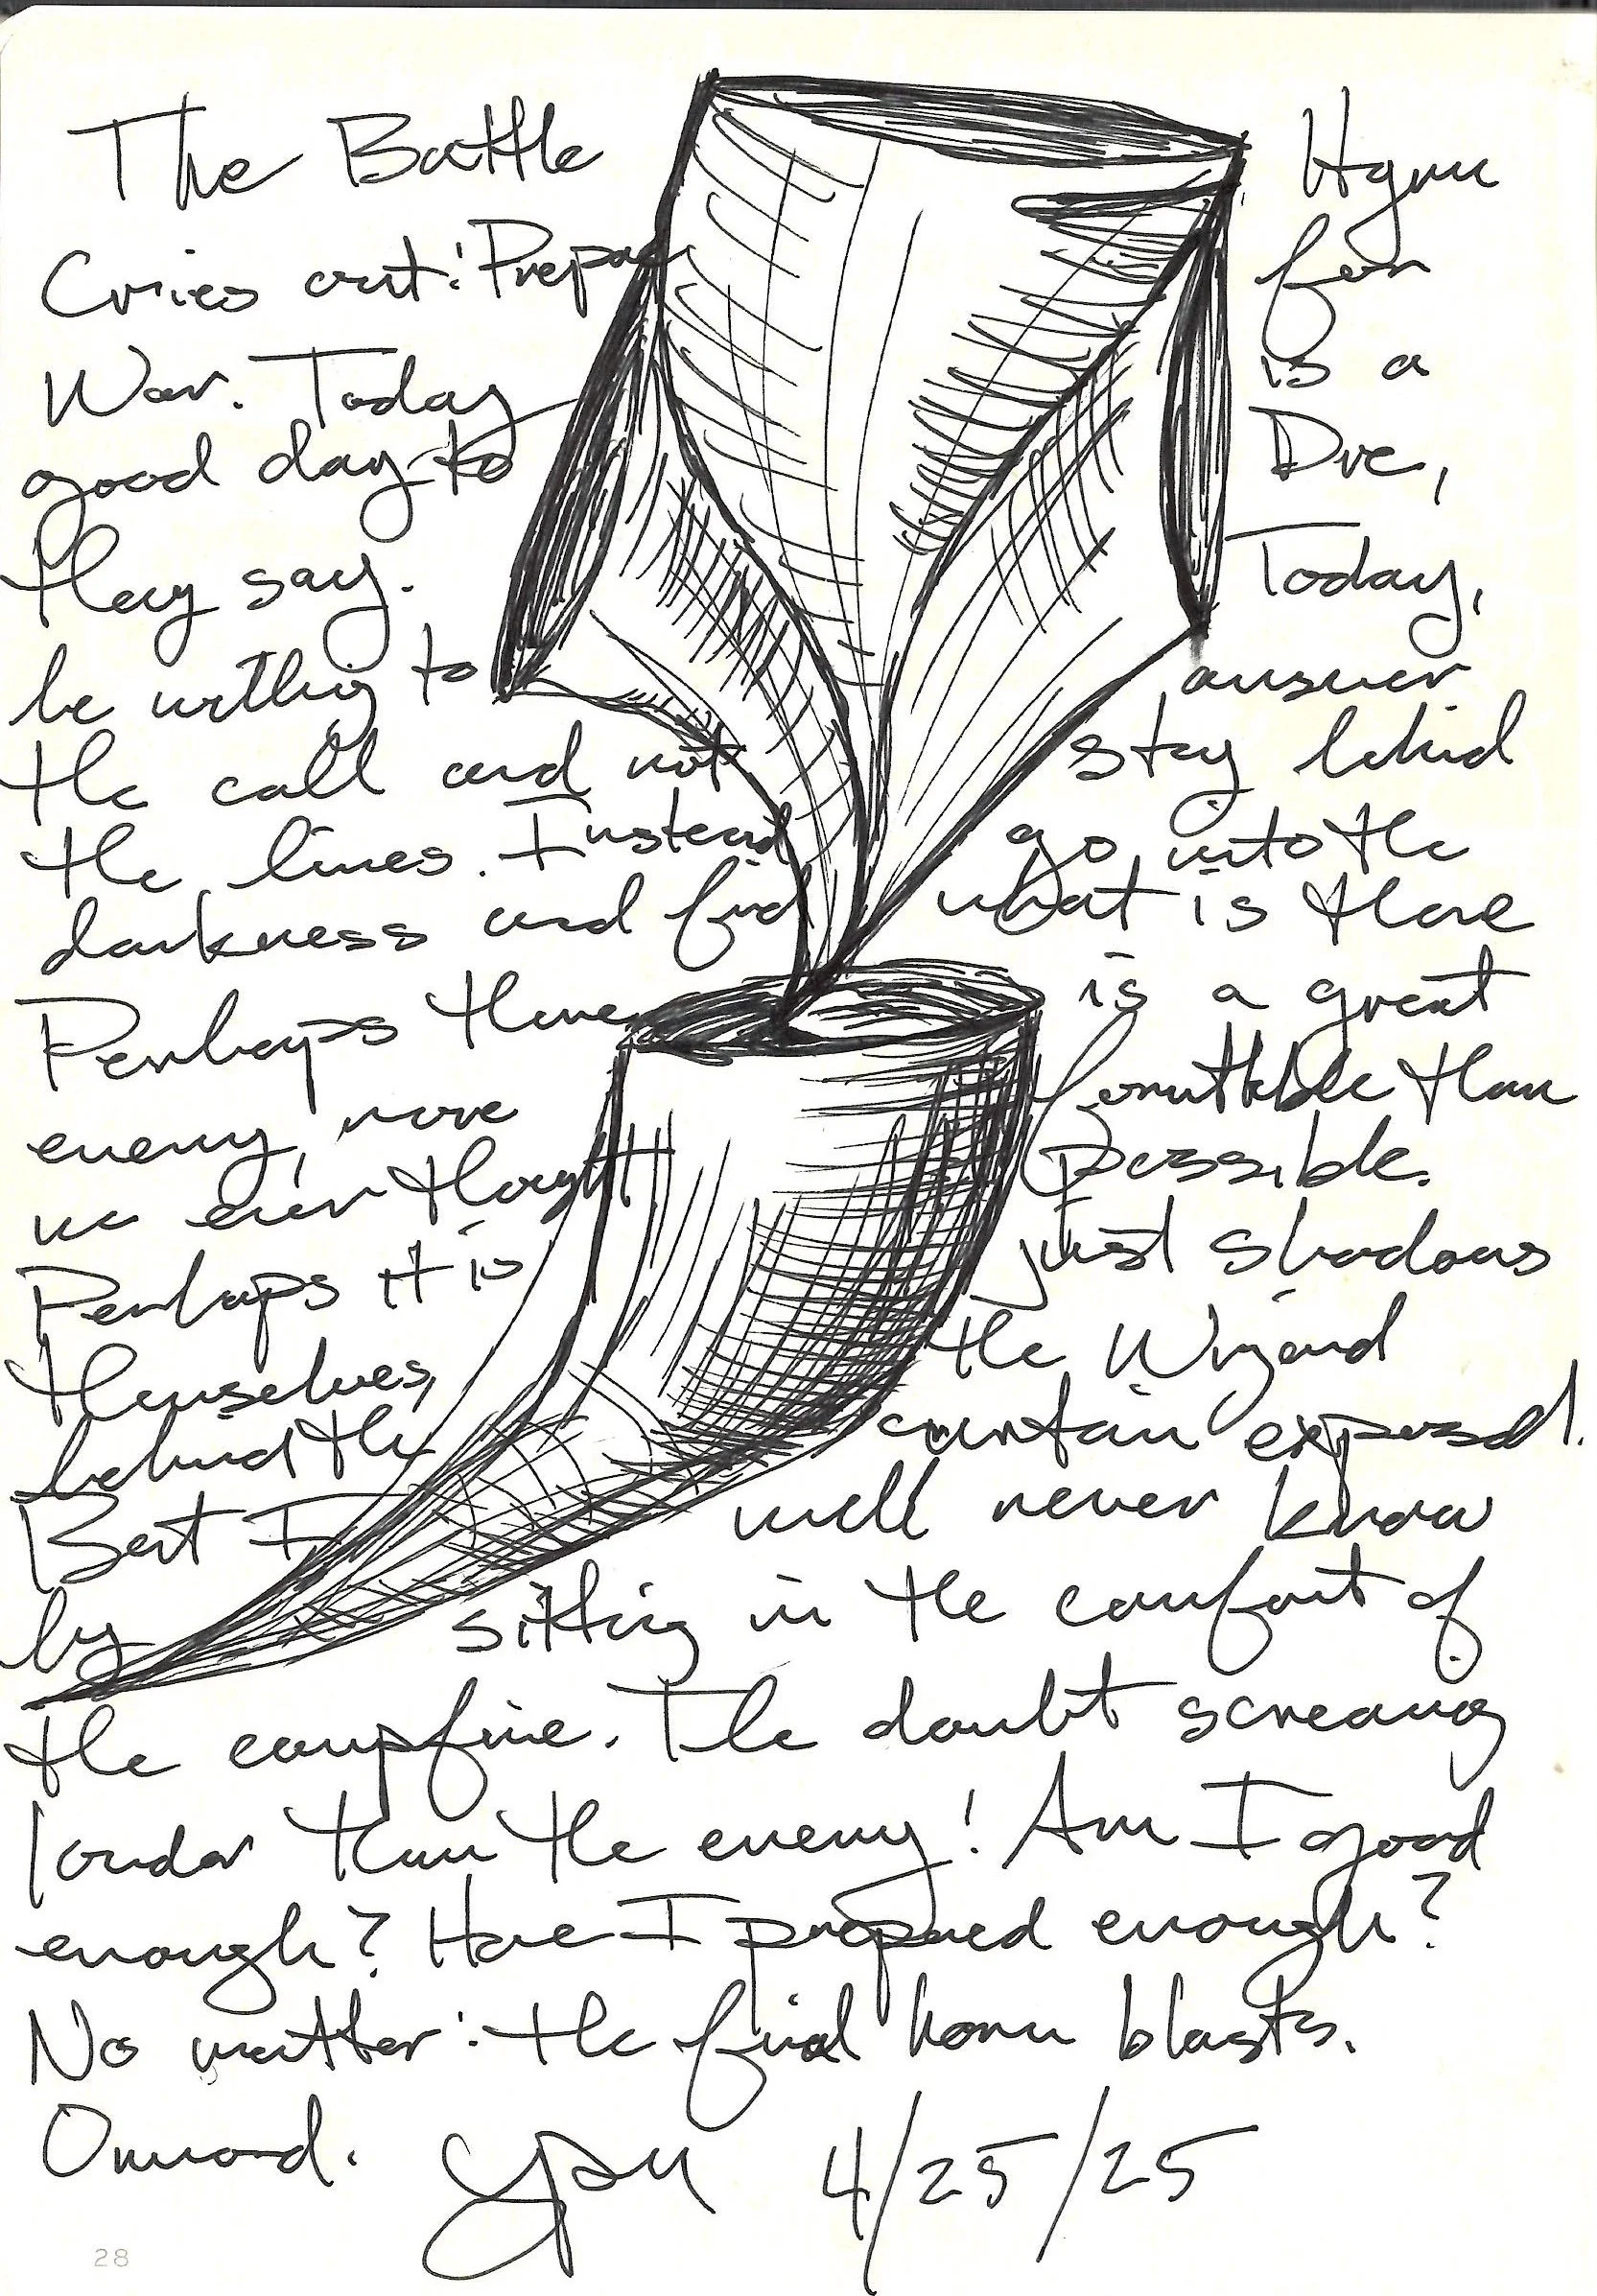 The Battle Hymn
Cries out: Prepare for
War. Today is a
good day to Die,
they say. Today,
be willing to answer
the call and not stay behind
the lines. Instead go into the
darkness and find what is there
Perhaps there is a great
enemy, more formitable than
we ever thought possible.
Perhaps it is just shadows
themselves, the Wizard
behind the curtain exposed.
But I will never know
by sitting in the comfort of
the campfire. The doubt screams
louder than the enemy! Am I good
enough? Have I prepared enough?
No matter: the final horn blasts.
Onward. 4/25/25
28